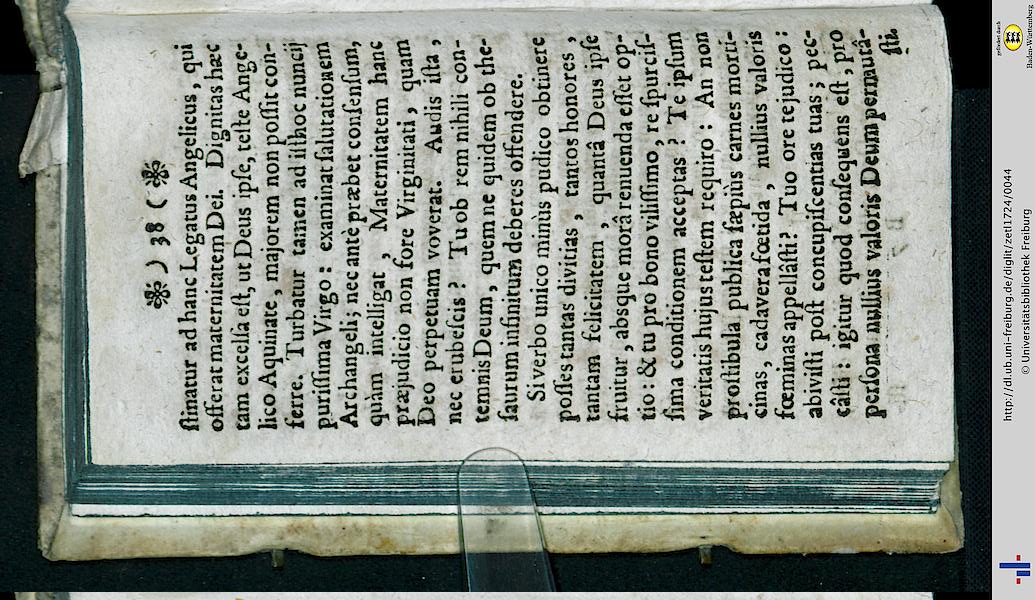 ❋ ) 38 ( ❋
ſtinatur ad hanc Legatus Angelicus, qui
offerat maternitatem Dei. Dignitas hæc
tam excelſa eſt, ut Deus ipſe, teſte Ange-
lico Aquinate, majorem non poſſit con-
ferre. Turbatur tamen ad iſthoc nuncij
puriſſima Virgo: examinat ſalutationem
Archangeli; nec antè præbet conſenſum,
quàm intelligat, Maternitatem hanc
præjudicio non fore Virginitati, quam
Deo perpetuam voverat. Audis iſta,
nec erubeſcis? Tu ob rem nihili con-
temnis Deum, quem ne quidem ob the-
ſaurum infinitum deberes offendere.
Si verbo unico minùs pudico obtinere
poſſes tantas divitias, tantos honores,
tantam felicitatem, quantâ Deus ipſe
fruitur, absque morâ renuenda eſſet op-
tio: & tu pro bono viliſſimo, re ſpurciſ-
ſima conditionem acceptas? Te ipſum
veritatis hujus teſtem requiro: An non
proſtibula publica ſæpiùs carnes morti-
cinas, cadavera fœtida, nullius valoris
fœminas appellâſti? Tuo ore te judico:
abiviſti poſt concupiſcentias tuas; pec-
câſti: igitur quod conſequens eſt, pro
perſona nullius valoris Deum permutâ-
ſti.
http://dl.ub.uni-freiburg.de/diglit/zetl1724/0044
© Universitätsbibliothek Freiburg
gefördert durch
Baden-Württemberg